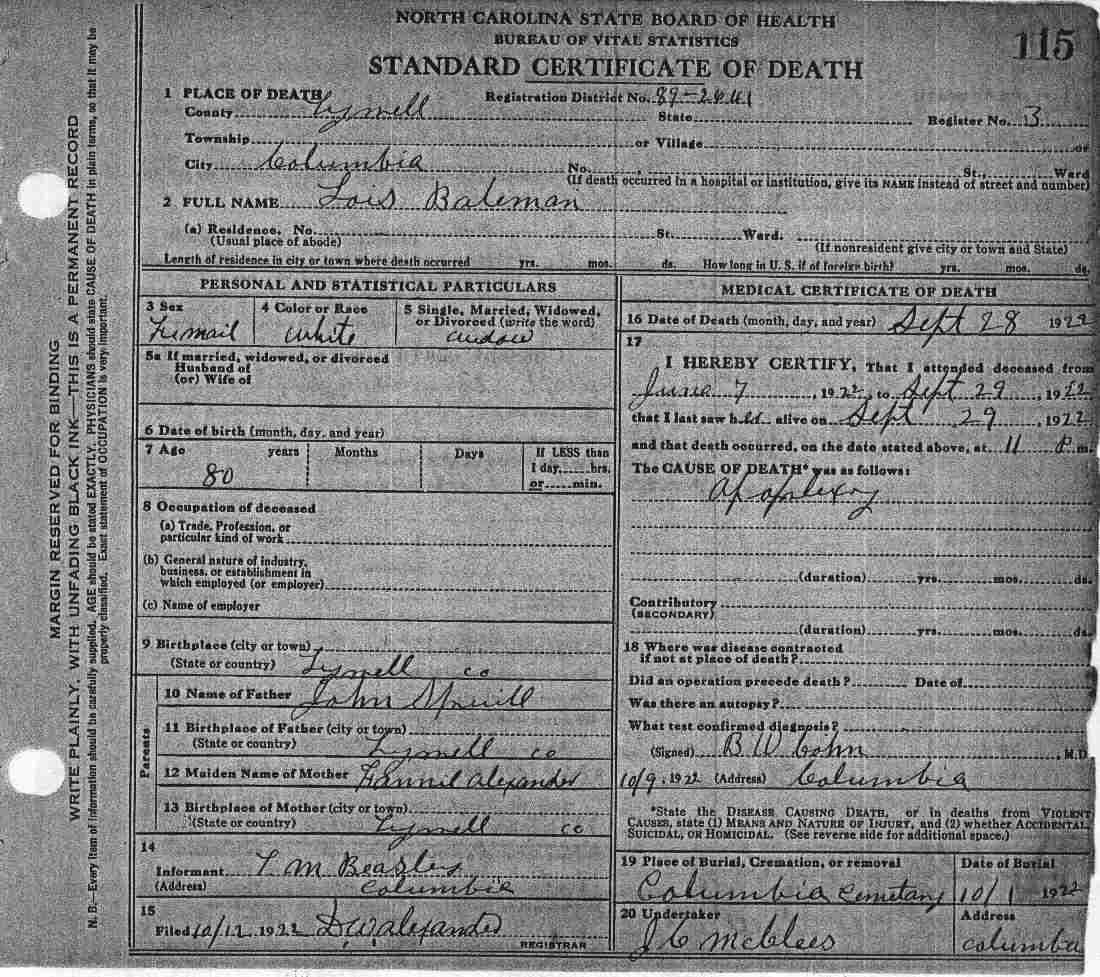 NORTH CAROLINA STATE BOARD OF HEALTH
BUREAU OF VITAL STATISTICS
115
STANDARD CERTIFICATE OF DEATH
1 PLACE OF DEATH Registration District No. 89-2641
County Tyrrell State Register No. 3
Township or Village or
City Columbia No. St., Ward
(If death occurred in a hospital or institution, give its NAME instead of street and number)
2 FULL NAME Lois Bateman
(a) Residence. No. St. Ward.
(Usual place of abode) (If nonresident give city or town and State)
Length of residence in city or town where death occurred yrs. mos. ds. How long in U. S. if of foreign birth? yrs. mos. ds.
PERSONAL AND STATISTICAL PARTICULARS
3 Sex 4 Color or Race 5 Single, Married, Widowed,
or Divorced (write the word)
Femail White widow
5a If married, widowed, or divorced
Husband of
(or) Wife of
6 Date of birth (month, day, and year)
7 Age years Months Days If LESS than
1 day, hrs.
80 or min.
8 Occupation of deceased
(a) Trade, Profession, or
particular kind of work
(b) General nature of industry,
business, or establishment in
which employed (or employer)
(c) Name of employer
9 Birthplace (city or town)
(State or country) Tyrrell co
Parents
10 Name of Father John Spruill
11 Birthplace of Father (city or town)
(State or country) Tyrrell co
12 Maiden Name of Mother Fannie Alexander
13 Birthplace of Mother (city or town)
(State or country) Tyrrell co
14
Informant T M Beasley
(Address) Columbia
15
Filed 10/12, 1922 D W Alexander
REGISTRAR
MEDICAL CERTIFICATE OF DEATH
16 Date of Death (month, day, and year) Sept 28 1922
17
I HEREBY CERTIFY, That I attended deceased from
June 7, 1922, to Sept 29, 1922
that I last saw her alive on Sept 29, 1922
and that death occurred, on the date stated above, at 11 P m.
The CAUSE OF DEATH* was as follows:
Apoplexy
(duration) yrs. mos. ds.
Contributory
(SECONDARY)
(duration) yrs. mos. ds.
18 Where was disease contracted
if not at place of death?
Did an operation precede death? Date of
Was there an autopsy?
What test confirmed diagnosis?
(Signed) B W Cohn, M.D.
10/9, 1922 (Address) Columbia
*State the DISEASE CAUSING DEATH, or in deaths from VIOLENT
CAUSES, state (1) MEANS AND NATURE OF INJURY, and (2) whether ACCIDENTAL,
SUICIDAL, OR HOMICIDAL. (See reverse side for additional space.)
19 Place of Burial, Cremation, or removal Date of Burial
Columbia Cemetary 10/1 1922
20 Undertaker Address
J C McClees Columbia
MARGIN RESERVED FOR BINDING
WRITE PLAINLY, WITH UNFADING BLACK INK—THIS IS A PERMANENT RECORD
N. B.—Every item of information should be carefully supplied. AGE should be stated EXACTLY. PHYSICIANS should state CAUSE OF DEATH in plain terms, so that it may be
properly classified. Exact statement of OCCUPATION is very important.